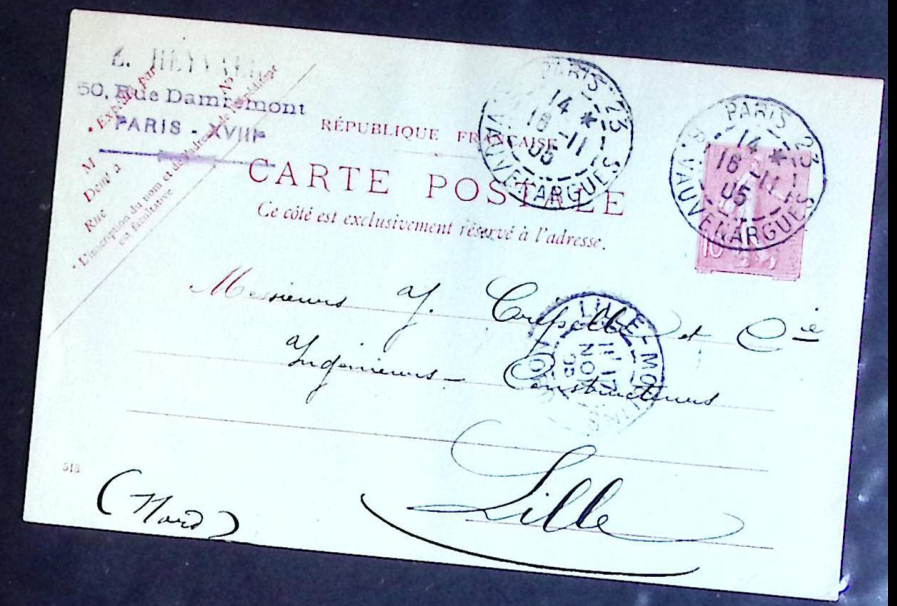 50, Rue Damremont
PARIS - XVIIIe
* Expédié par
No
M
Demt à
Rue
* L'inscription du nom et de l'adresse de l'expéditeur
est facultative
RÉPUBLIQUE FRANÇAISE
CARTE POSTALE
Ce côté est exclusivement réservé à l'adresse.
PARIS 23
14 *
16 - 11
05
R. VAUVENARGUES
PARIS 23
14 *
16 - 11
05
R. VAUVENARGUES
10
Messieurs J. Crepelle et Cie
Ingénieurs - Constructeurs
LILLE-MOULINS
17
NOV
05
Lille
(Nord)
513